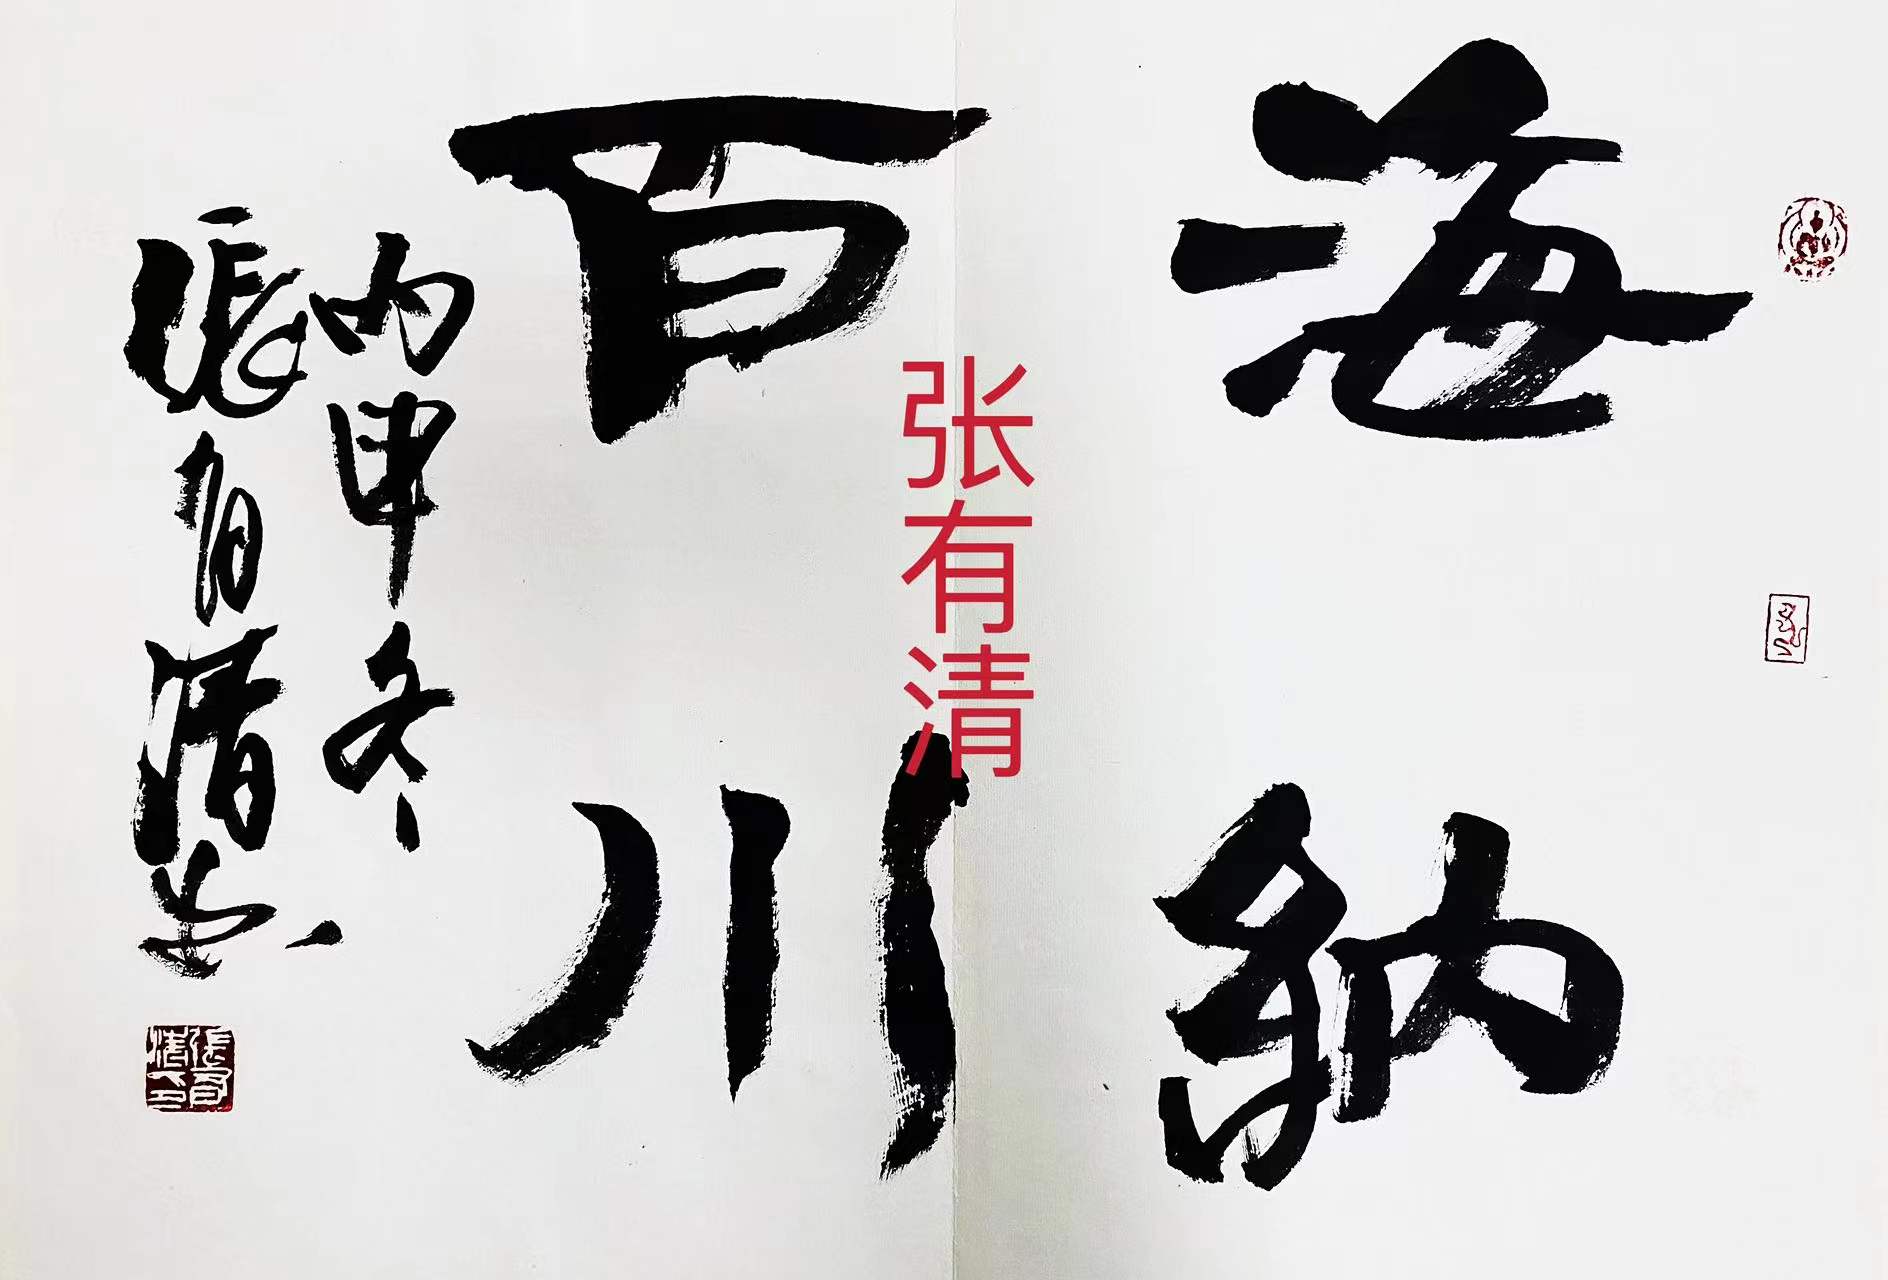 海納
百川
丙申冬
張有清書
張有清印
张有清